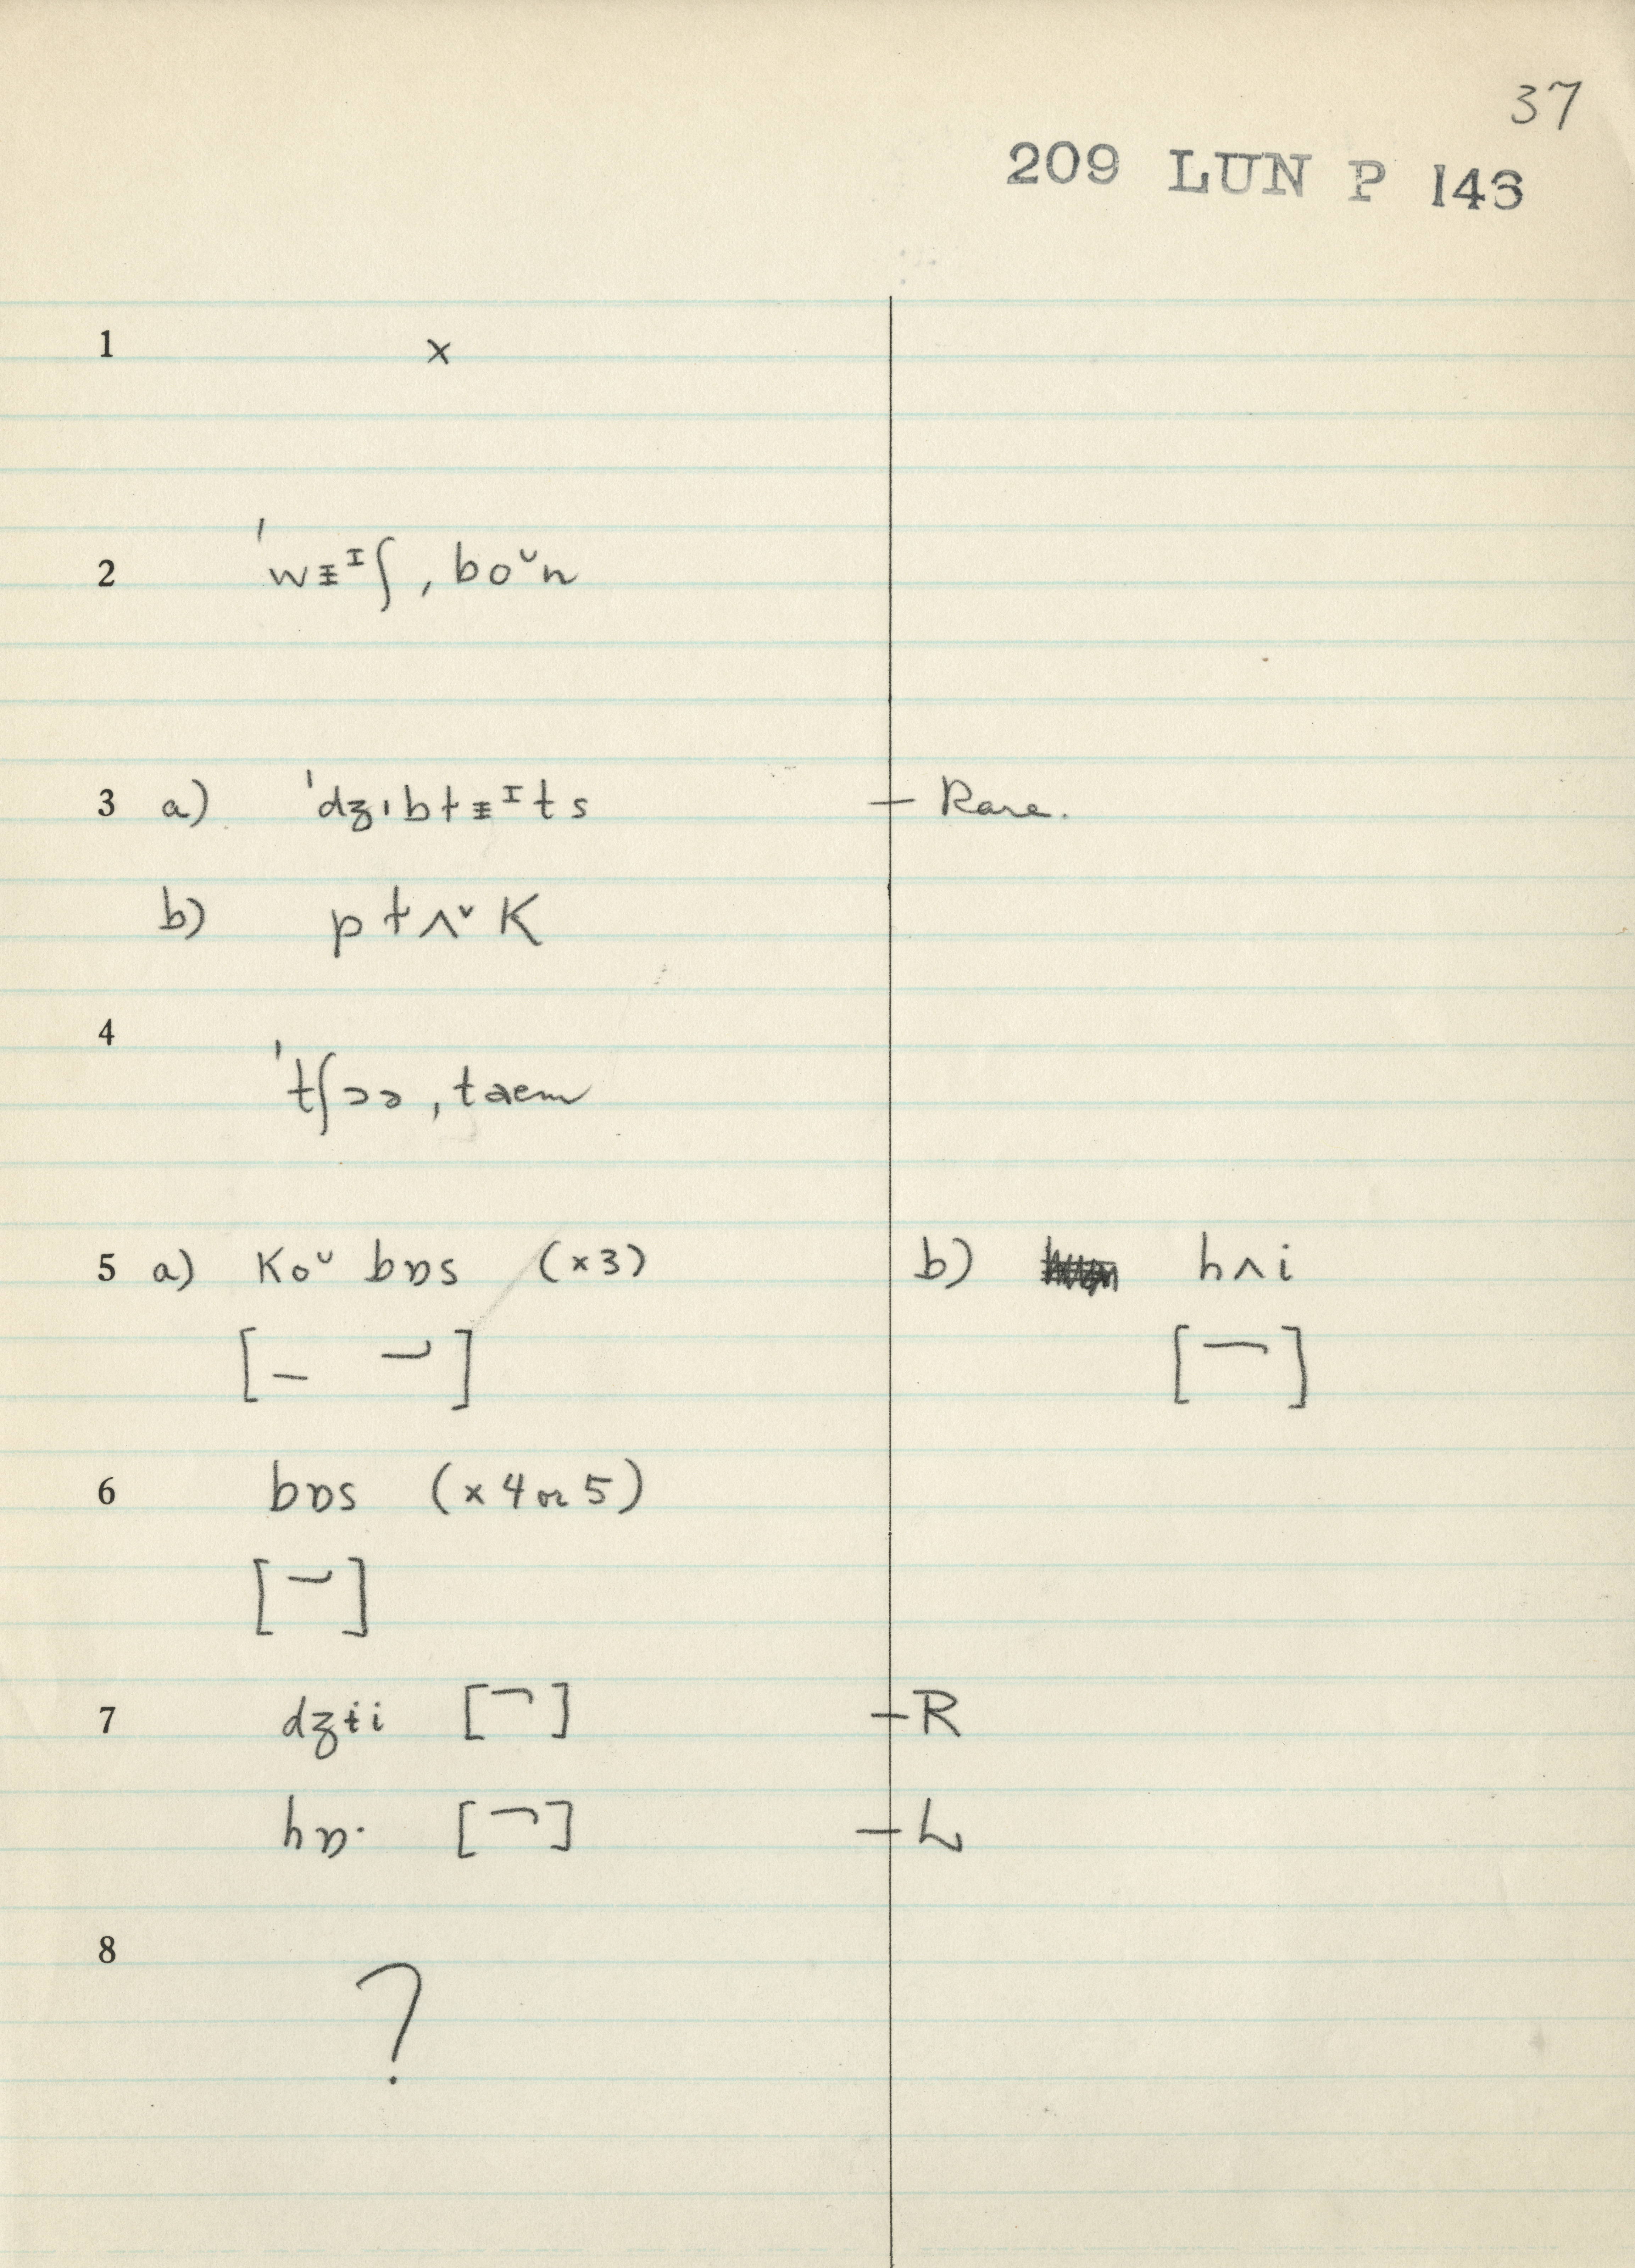 37
209 LUN P 143
1 x
2 ˈwᵻᴵʃ, boᵕn
3 a) ˈdʒɪbtᵻᴵts — Rare.
b) ptʌᵛK
4 ˈtʃɔə, taem
5 a) Koᵕ bɒs (x3) b) hʌi
6 bɒs (x 4 or 5)
7 dʒɨi [¬] — R
hɒ· [¬] — L
8 ?